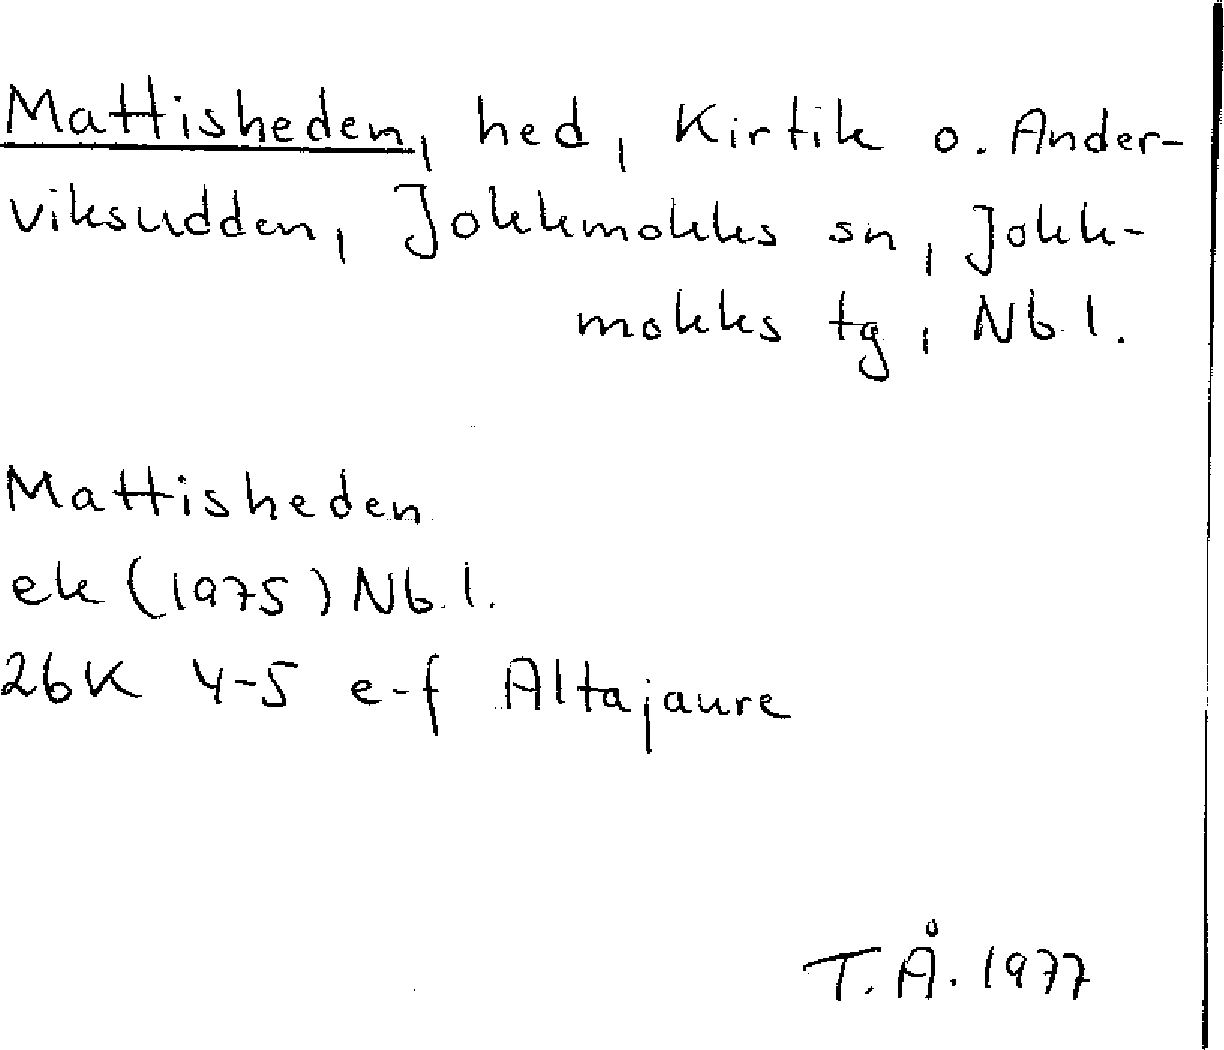 Mattisheden, hed, Kirtik o. Ander-
viksudden, Jokkmokks sn, Jokk-
mokks tg, Nb l.
Mattisheden
ek (1975) Nb. l.
26K 4-5 e-f Altajaure
T. Å. 1977